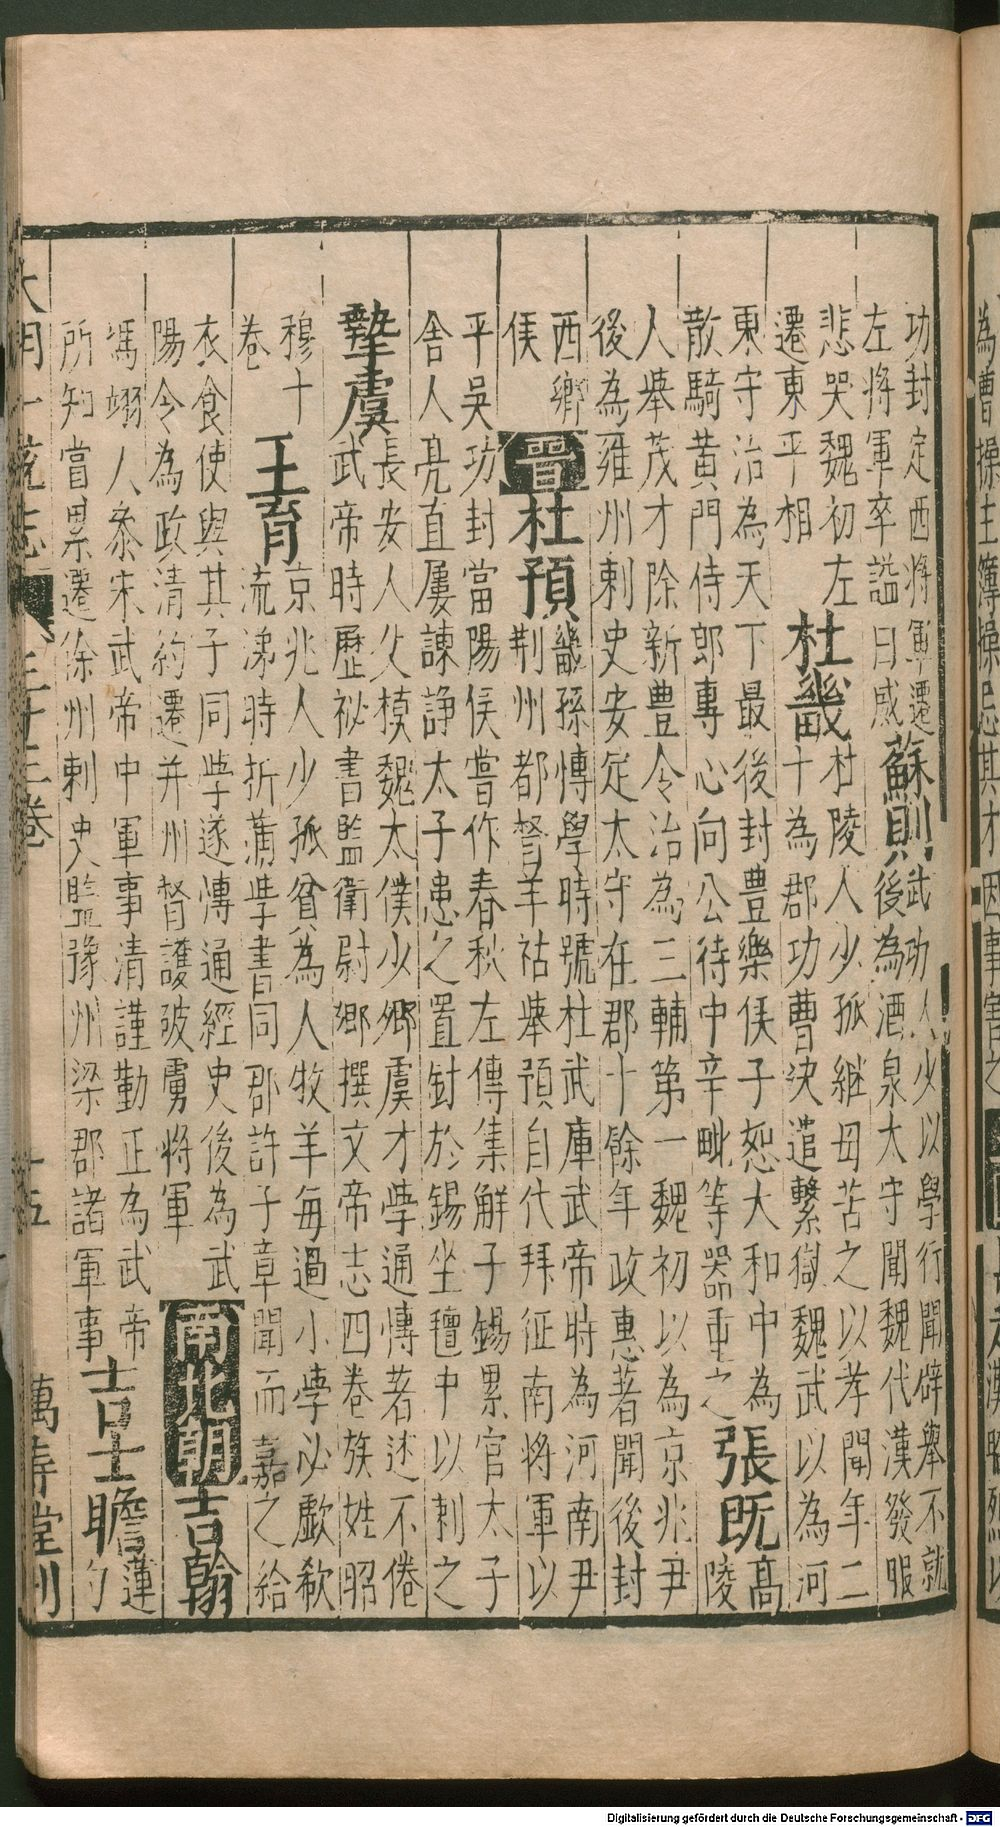 功封定西将軍遷
左将軍卒謚曰威
蘇則
武功人少以學行聞辟舉不就
後為酒泉太守聞魏代漢發服
悲哭魏初左
遷東平相
杜畿
杜陵人少孤継母苦之以孝聞年二
十為郡功曹决遣繫獄魏武以為河
東守治為天下最後封豊樂侯子恕大和中為
散騎黄門侍郎專心向公待中辛毗等器重之
張既
高
陵
人舉茂才除新豊令治為三輔第一魏初以為京兆尹
後為雍州刺史安定太守在郡十餘年政惠著聞後封
西鄉
侯
晋
杜預
畿孫愽學時號杜武庫武帝時為河南尹
荆州都督羊祜舉預自代拜征南将軍以
平吳功封當陽侯嘗作春秋左傳集解子錫累官太子
舍人亮直屢諫諍太子患之置針於錫坐氊中以刺之
摯虞
長安人父模魏太僕少鄉虞才學通愽著述不倦
武帝時歷祕書監衛尉鄉撰文帝志四卷族姓昭
穆十
卷
王育
京兆人少孤貧為人牧羊每過小學必歔欷
流涕時折蒲學書同郡許子章聞而嘉之給
衣食使與其子同學遂愽通經史後為武
陽令為政清約遷并州督護破虜将軍
南北朝
吉翰
馮翊人叅宋武帝中軍事清謹勤正為武帝
所知嘗累遷徐州刺史監豫州梁郡諸軍事
吉士瞻
蓮
勺
大明一統志 三十二卷 十五 萬壽堂刊
為曹操主簿操忌其才因事害之
Digitalisierung gefördert durch die Deutsche Forschungsgemeinschaft - DFG